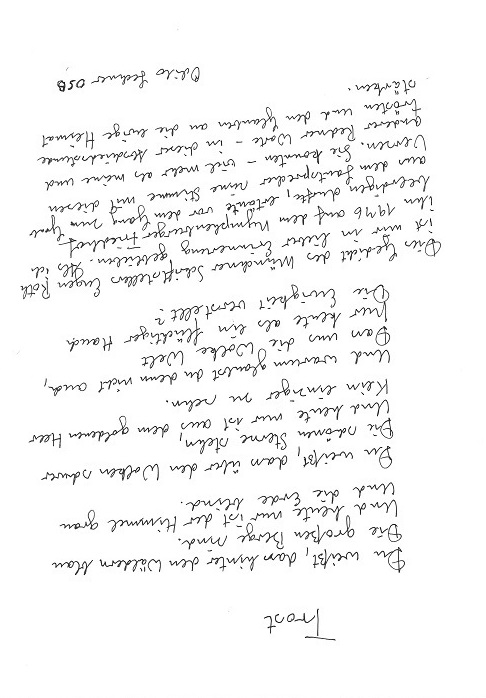 Trost
Du weißt, dass hinter den Wäldern blau
Die großen Berge sind.
Und heute nur ist der Himmel grau
Und die Erde blind.
Du weißt, dass über den Wolken schwer
Die schönen Sterne stehn,
Und heute nur ist aus dem goldenen Heer
Kein einziger zu sehn.
Und warum glaubst du denn nicht auch,
Dass uns die Wolke Welt
Nur heute als ein flüchtiger Hauch
Die Ewigkeit verstellt?
Dies Gedicht des Münchner Schriftstellers Eugen Roth
ist mir in lieber Erinnerung geblieben. Als ich
ihn 1976 auf dem Nymphenburger Friedhof
beerdigen durfte, ertönte vor dem Gang zum Grab
aus dem Lautsprecher seine Stimme mit diesen
Versen. Sie konnten – viel mehr als meine und
anderer Redner Worte – in dieser Abschiedsstunde
trösten und den Glauben an die ewige Heimat
stärken.
Odilo Lechner OSB